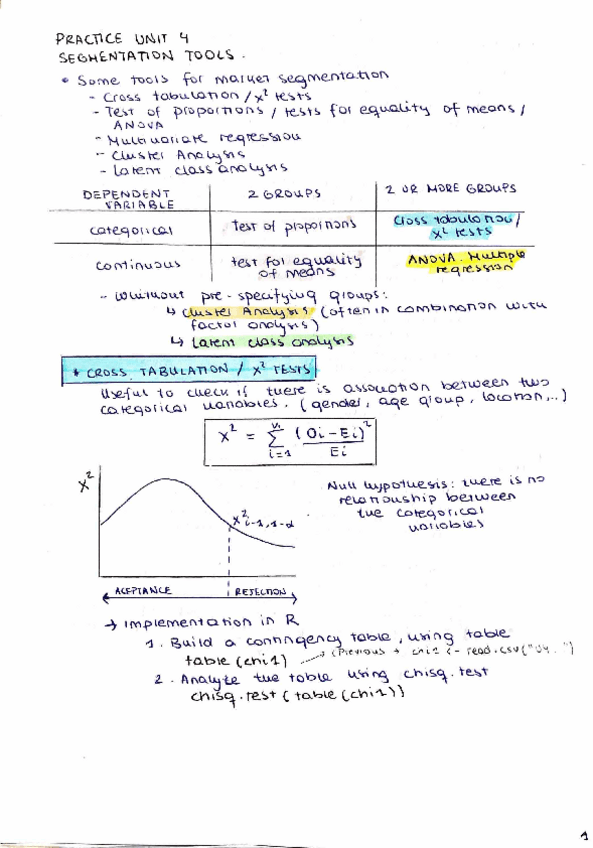 PRACTICE UNIT 4
SEGMENTATION TOOLS.
• Some tools for market segmentation
- Cross tabulation / x² tests
- Test of proportions / tests for equality of means /
ANOVA
- Multivariate regression
- Cluster Analysis
- Latent class analysis
DEPENDENT VARIABLE | 2 GROUPS | 2 OR MORE GROUPS
categorical | Test of proportions | Cross tabulation / x² tests
continuous | test for equality of means | ANOVA. Multiple regression
- Whithout pre-specifying groups:
↳ Cluster Analysis (often in combination with
factor analysis)
↳ Latent class analysis
* CROSS TABULATION / X² TESTS
Useful to check if there is association between two
categorical variables. (gender, age group, location,..)
X² = Σ (Oi - Ei)² / Ei
i=1
X²
Null hypothesis: there is no
relationship between
the categorical
variables
X² i-1, 1-α
ACEPTANCE | REJECTION
→ Implementation in R
1. Build a contingency table, using table
table (chi1) → (Previous → chi1 <- read.csv("U4. ")
2. Analyze the table using chisq.test
chisq.test (table (chi1))
1